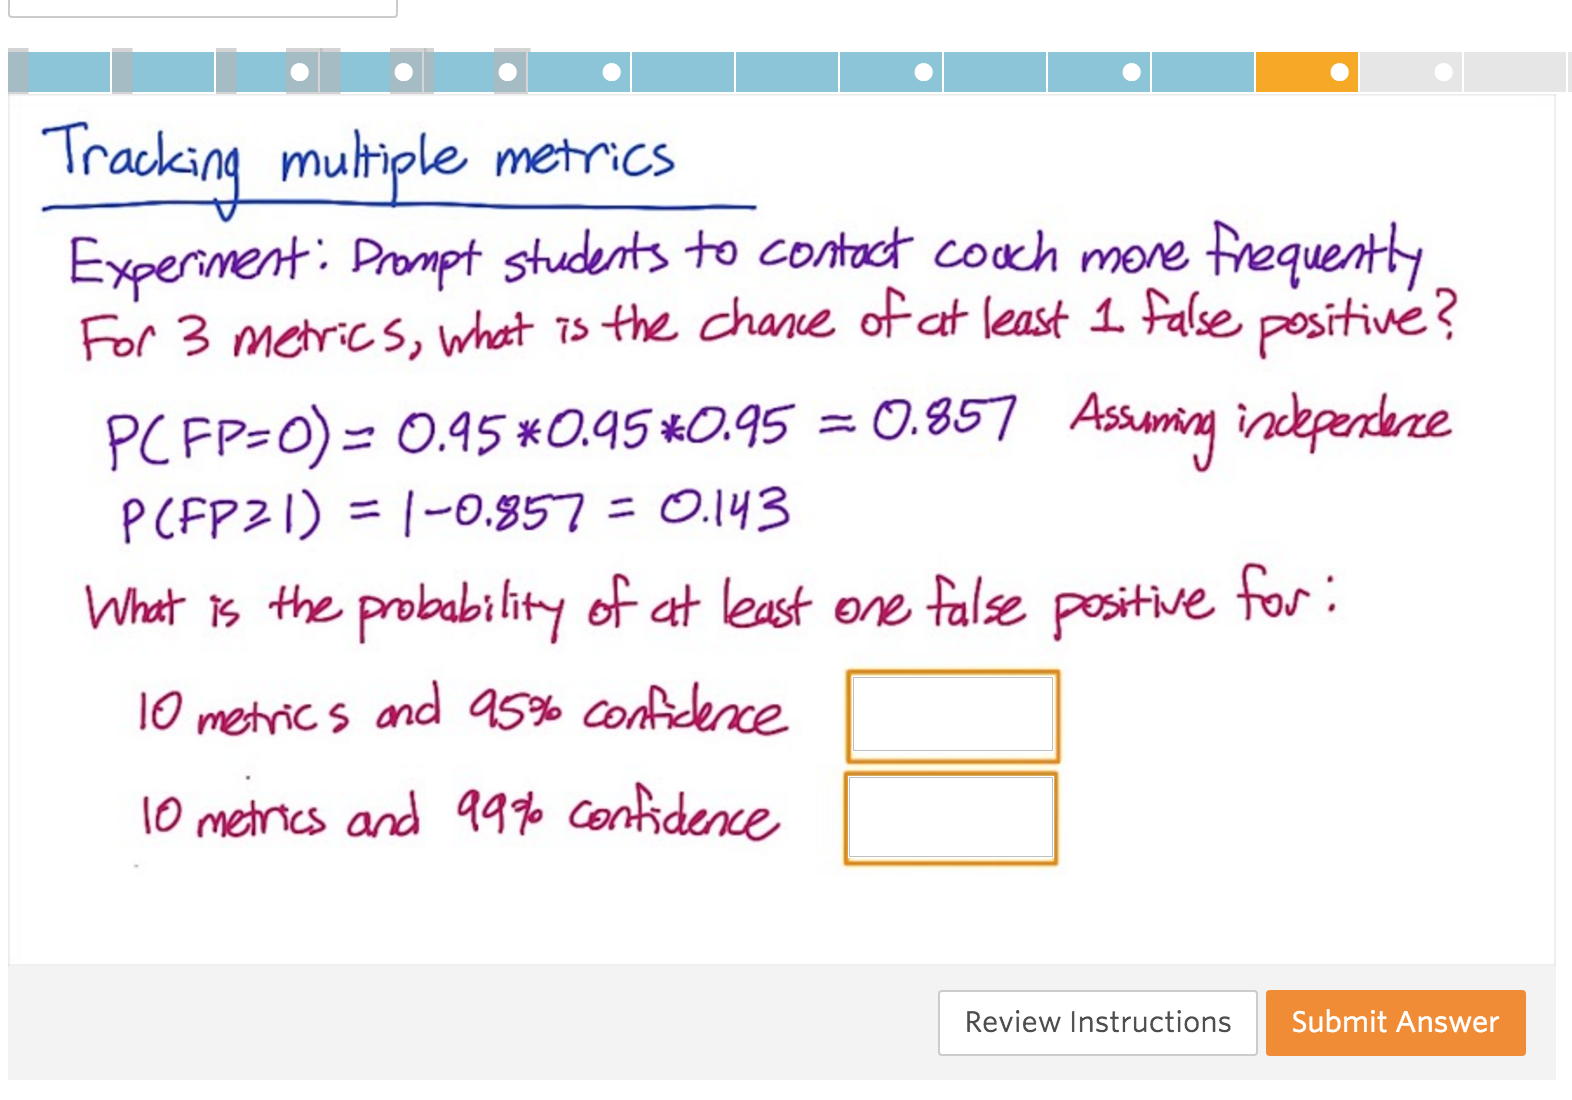 Tracking multiple metrics
Experiment: Prompt students to contact coach more frequently
For 3 metrics, what is the chance of at least 1 false positive?
P(FP=0) = 0.95*0.95*0.95 = 0.857 Assuming independence
P(FP≥1) = 1-0.857 = 0.143
What is the probability of at least one false positive for:
10 metrics and 95% confidence
10 metrics and 99% confidence
Review Instructions Submit Answer